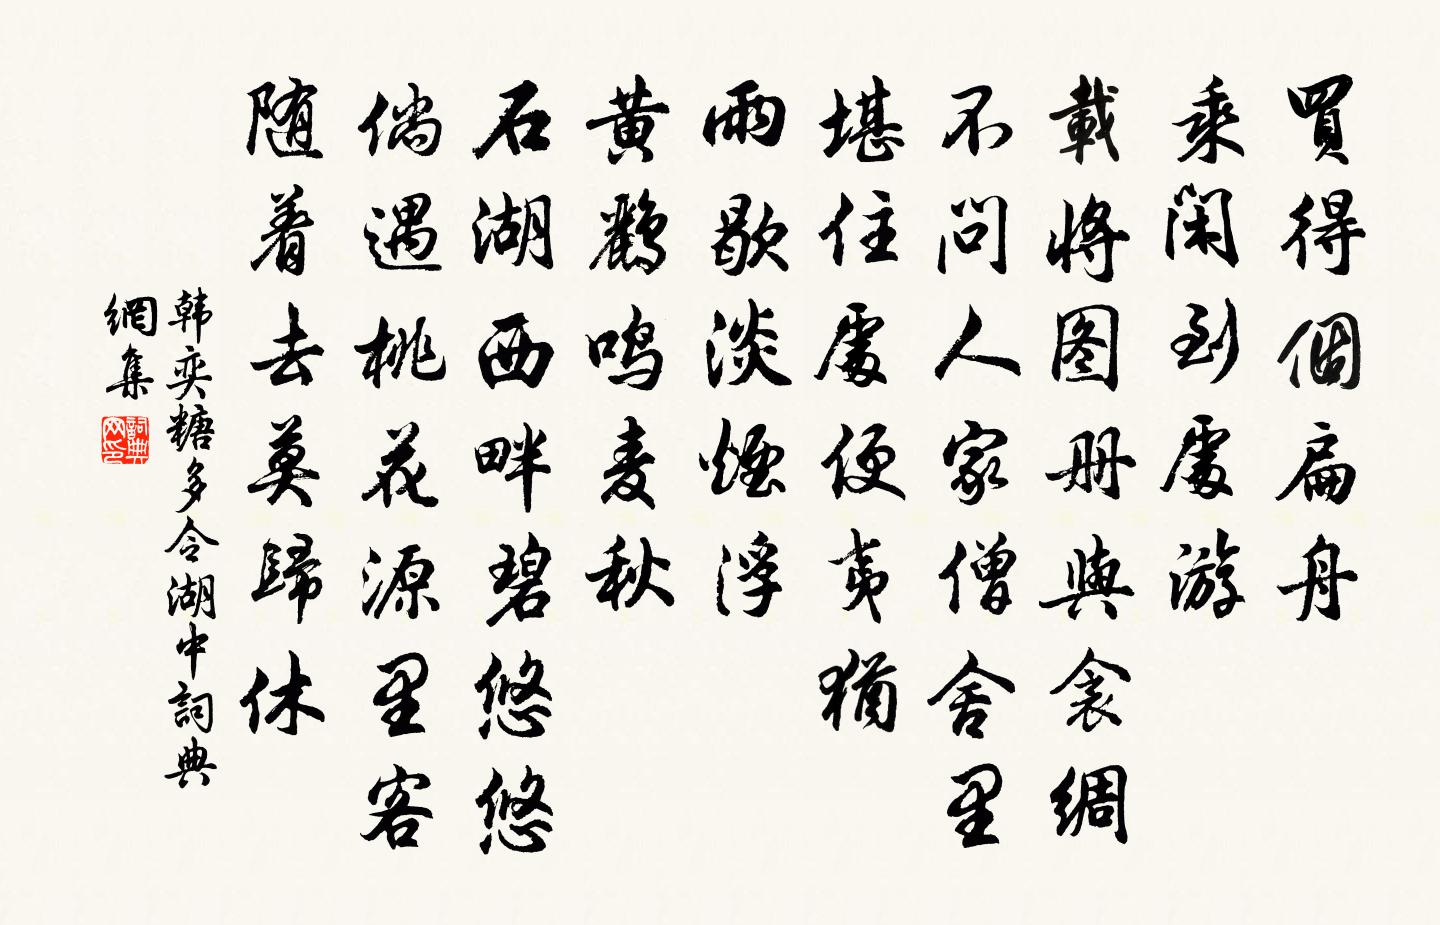 買得個扁舟
乘闲到處游
載將图册與衾綢
不問人家僧舍里
堪住處便夷猶
雨歇淡煙浮
黄鹂鸣麦秋
石湖西畔碧悠悠
倘遇桃花源里客
随着去莫歸休
韩奕糖多令湖中詞典
網集
詞典网印